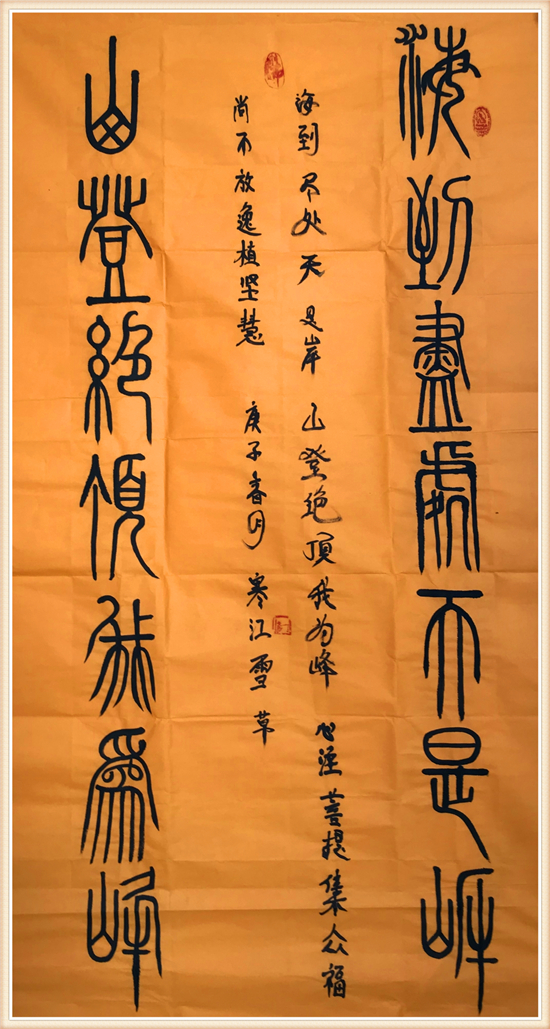 海到盡處天是岸
海到尽处天是岸 山登绝顶我为峰 心菩提集众福
尚不放逸植坚慧 庚子春月 寒江雪草
山登絕頂我為峰